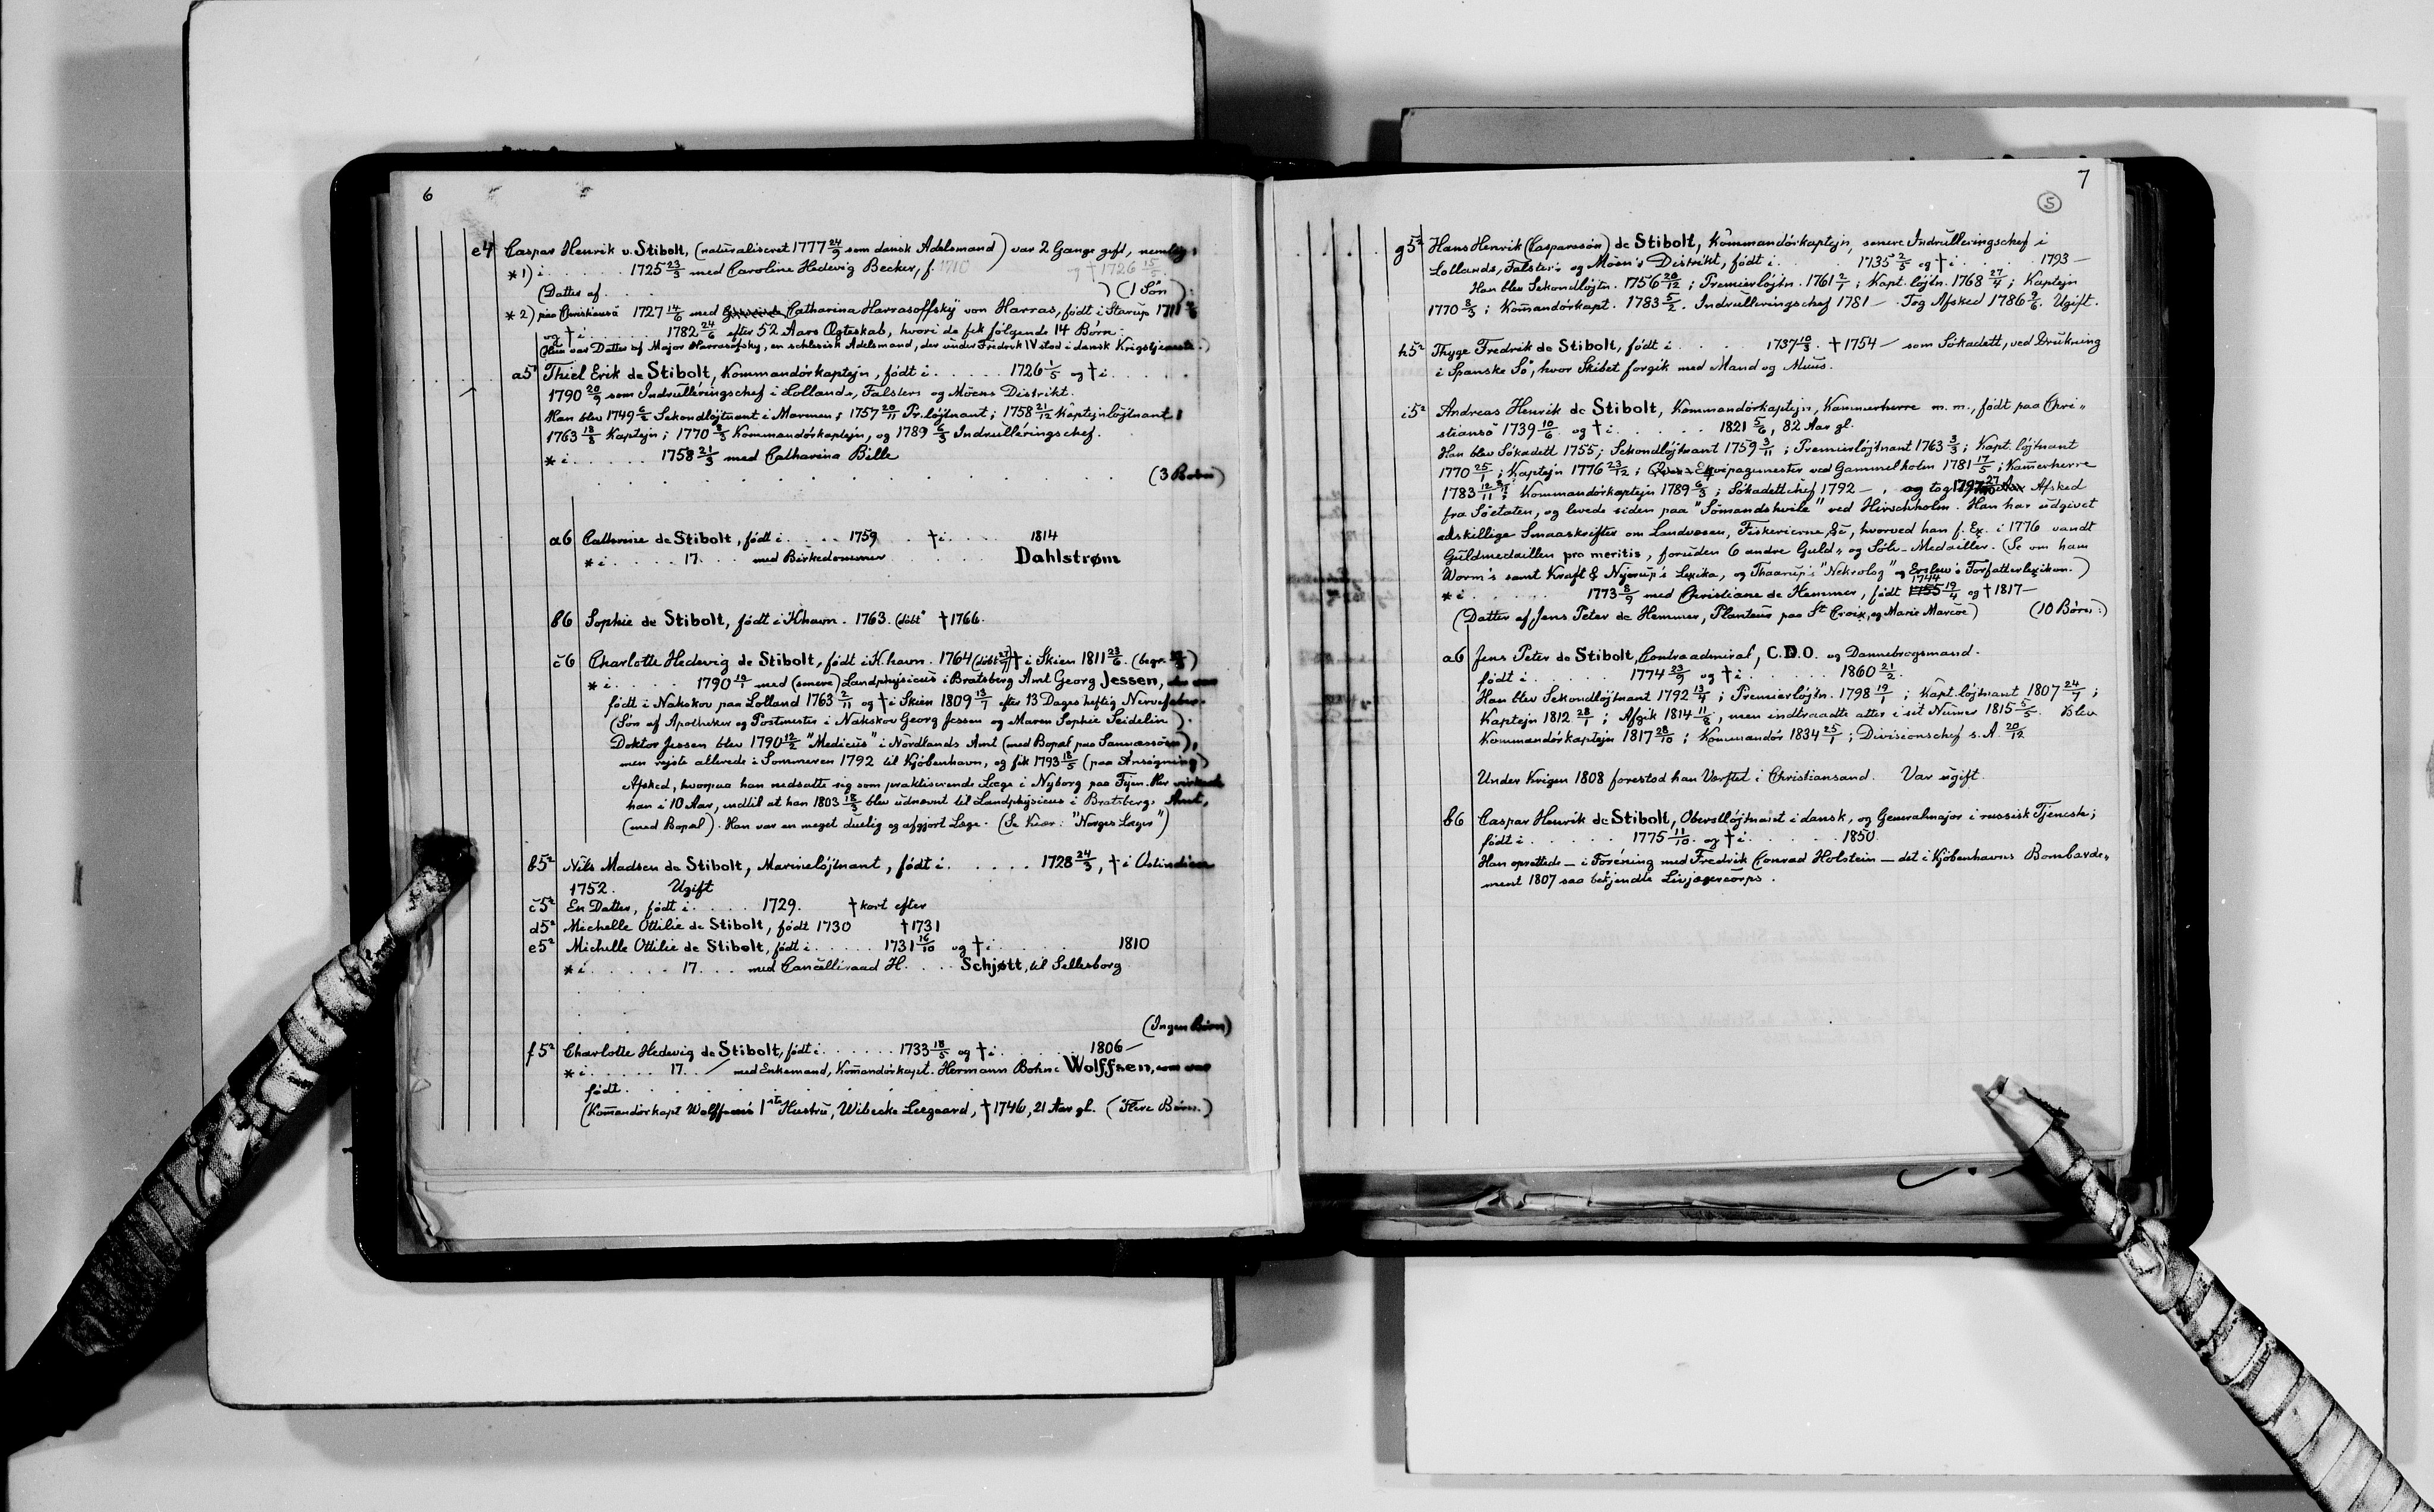 6
e4 Caspar Henrik v. Stibolt, (naturaliseret 1777 24/9 som dansk Adelsmand) var 2 Gange gift, nemlig:
* 1) i . . . . . . 1725 23/3 med Caroline Hedevig Becker, f. 1710 og † 1726 15/5
(Datter af . . . . . ) (1 Søn)
* 2) paa Christiansö 1727 14/6 med Catharina Harrasoffskÿ von Harras, født i Starup 1711
og † i . . . . . . 1782 24/6 efter 52 Aars Ægteskab, hvori de fik følgende 14 Børn:
(Hun var Datter af Major Harrasofsky, en schlesisk Adelsmand, der under Fredrik IV stod i dansk Krigstjeneste.)
a5¹ Thiel Erik de Stibolt, Kommandörkaptejn, født i . . . . . 1726 1/5 og † i . . . .
1790 20/9 som Indrulleringschef i Lollands, Falsters og Möens Distrikt.
Han blev 1749 6/2 Sekondlöjtnant i Marinen; 1757 20/11 Pr. löjtnant; 1758 21/12 Kaptejnlöjtnant;
1763 18/3 Kaptejn; 1770 8/3 Kommandörkaptejn, og 1789 6/3 Indrulleringschef.
* i . . . . . 1758 21/3 med Catharina Bille
(3 Børn)
a6 Cathrine de Stibolt, født i . . . . 1759 . . † i . . . . 1814
* i . . . . . 17. . . . med Birkedommer . . . . . Dahlstrøm
b6 Sophie de Stibolt, født i Khavn. 1763. (døbt † 1766.
c6 Charlotte Hedevig de Stibolt, født i K.havn. 1764 (døbt 27/7) † i Skien 1811 23/6. (begr. )
* i . . . . . 1790 19/1 med (senere) Landphysicus i Bratsberg Amt Georg Jessen,
født i Nakskov paa Lolland 1763 2/11 og † i Skien 1809 13/7 efter 13 Dages heftig Nervefeber.
(Søn af Apotheker og Postmester i Nakskov Georg Jessen og Maren Sophie Seidelin).
Doktor Jessen blev 1790 12/2 "Medicus" i Nordlands Amt (med Bopæl paa Sannessöen),
men rejste allerede i Sommeren 1792 til Kjøbenhavn, og fik 1793 18/5 (paa Ansøgning)
Afsked, hvorpaa han nedsatte sig som praktiserende Læge i Nyborg paa Fyen. Her virkede
han i 10 Aar, indtil at han 1803 18/3 blev udnævnt til Landphysicus i Bratsbergs Amt,
(med Bopæl). Han var en meget duelig og afgjort Læge. (Se Kiær: "Norges Læger")
b5² Nils Madsen de Stibolt, Marinelöjtnant, født i . . . . . 1728 24/3, † i Ostindien
1752. Ugift
c5² En Datter, født i . . . . . 1729. † kort efter
d5² Michelle Ottilie de Stibolt, født 1730 † 1731
e5² Michelle Ottilie de Stibolt, født i . . . . . 1731 16/10 og † i . . . . . 1810
* i . . . . . . 17. . . . med Cancelliraad H. . . . Schjøtt, til Sellesborg
(Ingen Børn)
f5² Charlotte Hedevig de Stibolt, født i . . . . . . 1733 18/5 og † i . . . . . 1806 —
* i . . . . . . 17. . med Enkemand, Komandörkapt. Hermann Bohne Wolffsen, som var
født . . . .
(Komandörkapt Wolffsens 1ste Hustru, Wibecke Leegaard, † 1746, 21 Aar gl. (Flere Børn.)
7
5
g5² Hans Henrik (Casparssön) de Stibolt, Kommandörkaptejn, senere Indrulleringschef i
Lollands, Falster's og Möen's Distrikt, født i . . . . . 1735 2/5 og † i . . . . . 1793 —
Han blev Sekondlöjtn. 1756 20/12; Premierlöjtn. 1761 2/7; Kapt. löjtn. 1768 27/4; Kaptejn
1770 8/3; Komandörkapt. 1783 5/2. Indrulleringschef 1781 — Tog Afsked 1786 9/6. Ugift.
h5² Thyge Fredrik de Stibolt, født i . . . . 1737 10/3. † 1754 — som Sökadett, ved Drukning
i Spanske Sö, hvor Skibet forgik med Mand og Muus.
i5² Andreas Henrik de Stibolt, Kommandörkaptejn, Kammerherre m. m., født paa Chri„
stiansö 1739 10/6. og † i . . . . . 1821 5/6, 82 Aar gl.
Han blev Sökadett 1755; Sekondlöjtnant 1759 3/11; Premierlöjtnant 1763 3/3; Kapt. löjtnant
1770 25/1; Kaptejn 1776 23/12; Ekvipagemester ved Gammelholm 1781 17/5; Kamerherre
1783 12/11; Kommandörkaptejn 1789 6/3; Sökadettchef 1792 —, og tog 1797 27 Afsked
fra Söetaten, og levede siden paa "Sömandshvile" ved Hirschholm. Han har udgivet
adskillige Smaaskrifter om Landvæsen, Fiskerierne &c, hvorved han f. Ex. i 1776 vandt
Guldmedaillen pro meritis, foruden 6 andre Guld„ og Sölv-Medailler. (Se om ham
Worm's samt Kraft & Nyerup's Lexika, og Thaarup's "Nekrolog" og Erslew's Forfatterlexikon.)
* i . . . . . . 1773 8/9 med Christiane de Hemmer, født 1744 19/4 og † 1817 —
(Datter af Jens Peter de Hemmer, Planteur paa St Croix, og Marie Marcoe) (10 Børn:)
a6 Jens Peter de Stibolt, Contraadmiral, C.D.O. og Dannebrogsmand.
født i . . . . . 1774 23/9 og † i . . . . . 1860 21/2.
Han blev Sekondlöjtnant 1792 13/4; Premierlöjtn. 1798 19/1; Kapt. löjtnant 1807 24/7;
Kaptejn 1812 28/1; Afgik 1814 11/8, men indtraadte atter i sit Numer 1815 5/5. Blev
Kommandörkaptejn 1817 28/10; Kommandör 1834 25/1; Divisionschef s. A. 20/12
Under Krigen 1808 forestod han Værftet i Christiansand. Var ugift.
b6 Caspar Henrik de Stibolt, Oberstlöjtnant i dansk, og Generalmajor i russisk Tjeneste;
født i . . . . . 1775 11/10. og † i . . . . . 1850.
Han oprettede — i Forening med Fredrik Conrad Holstein — det i Kjöbenhavns Bombarde„
ment 1807 saa bekjendte Livjægercorps.